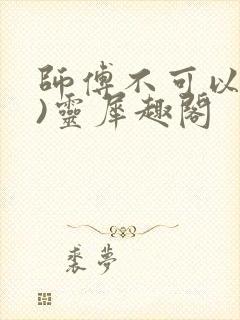 師傅不可以
)靈犀趣閣
裘夢